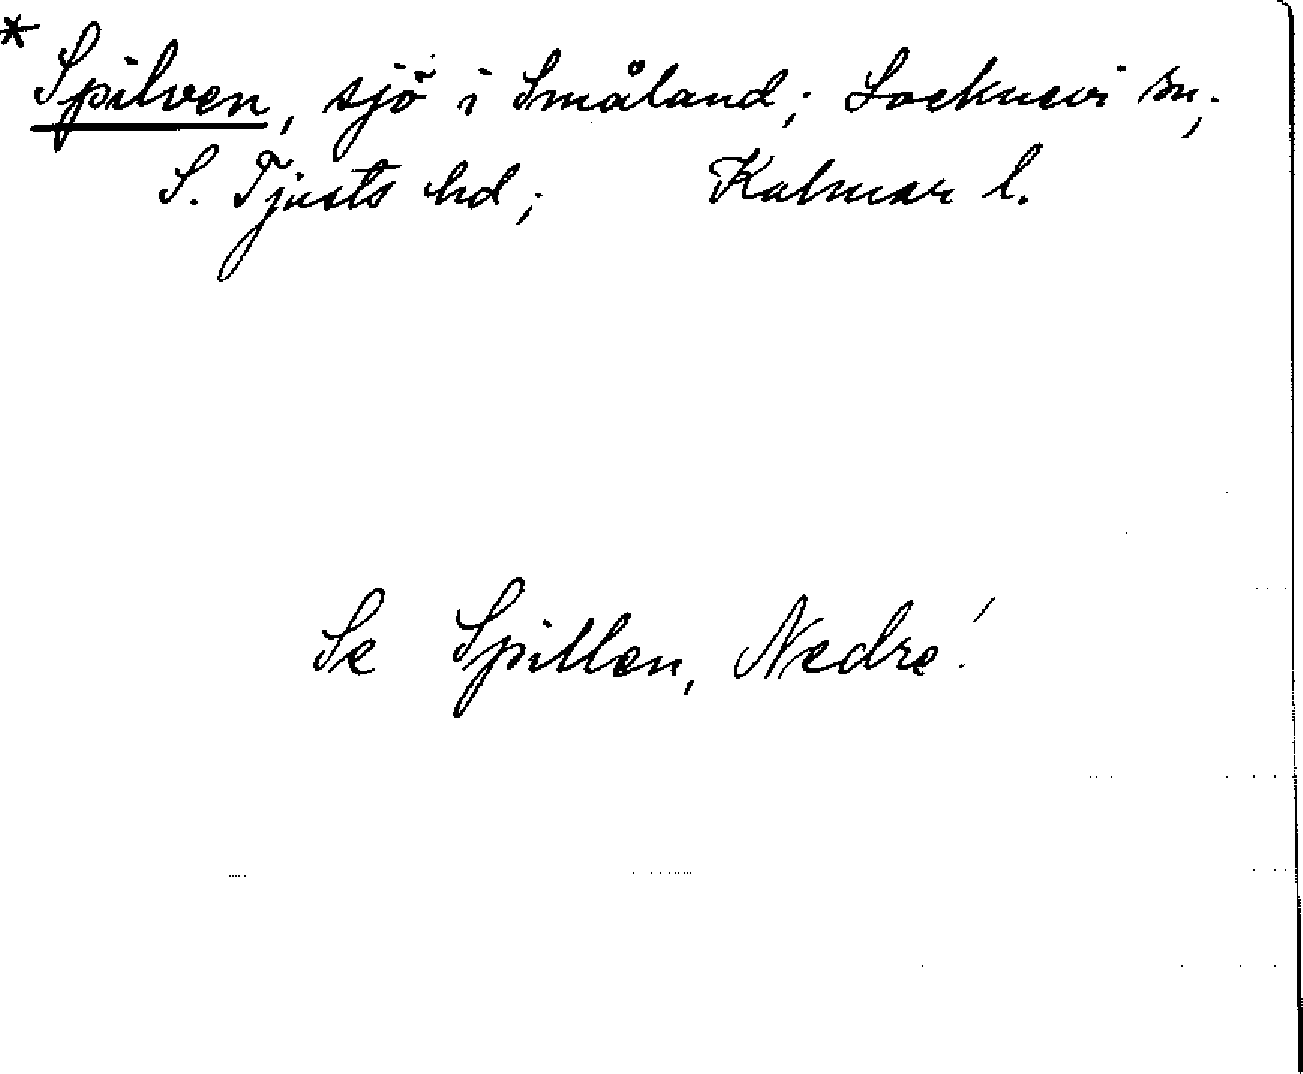 * Spilven, sjö i Småland; Locknevi sn;
S. Tjusts hd; Kalmar l.
Se Spillen, Nedre!